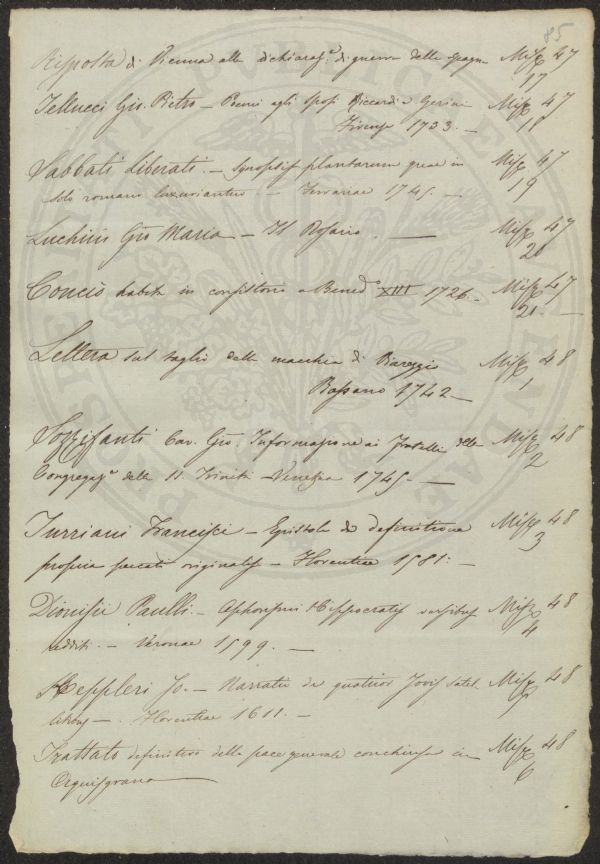 85
Risposta di Vienna alla dichiaraz.e di guerra della Spagna Misc 47
17
Tellucci Gio. Pietro – Poemi agli sposi Riccardi e Gerini Misc 47
Firenze 1733. – 18
Sabbati Liberati. – Synopsis plantarum quae in Misc 47
solo romano luxuriantur – Ferrariae 1745. – 19
Luchini Gio Maria – Il Rosario. – Misc 47
20
Concio habita in consistorio a Bened.o XIII 1726. Misc 47
21. –
Lettera sul taglio della macchia di Viareggio Misc 48
Bassano 1742 – 1
Sozzifanti Cav. Gio. Informazione ai fratelli della Misc 48
Congregaz.e della SS. Trinità – Venezia 1745. – 2
Turriani Francisci – Epistola de definitione Misc 48
propria peccati originalis – Florentiae 1581. – 3
Dionisii Paulli. – Aphorismi Hippocratis versibus Misc 48
redditi. – Veronae 1599. – 4
Keppleri Jo. – Narratio de quatuor Jovis satel- Misc 48
litibus – . Florentiae 1611. –
Trattato definitivo della pace generale conchiusa in Misc 48
Aquisgrana 6